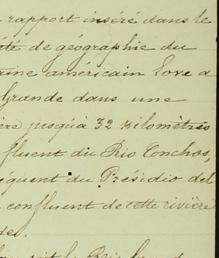 rapport inséré dans le
de géographie du
américain Love a
Grande dans une
jusqu'à 32 Kilomètres
fluent du Rio Conchos,
équent du Présidio del
confluent de cette rivière